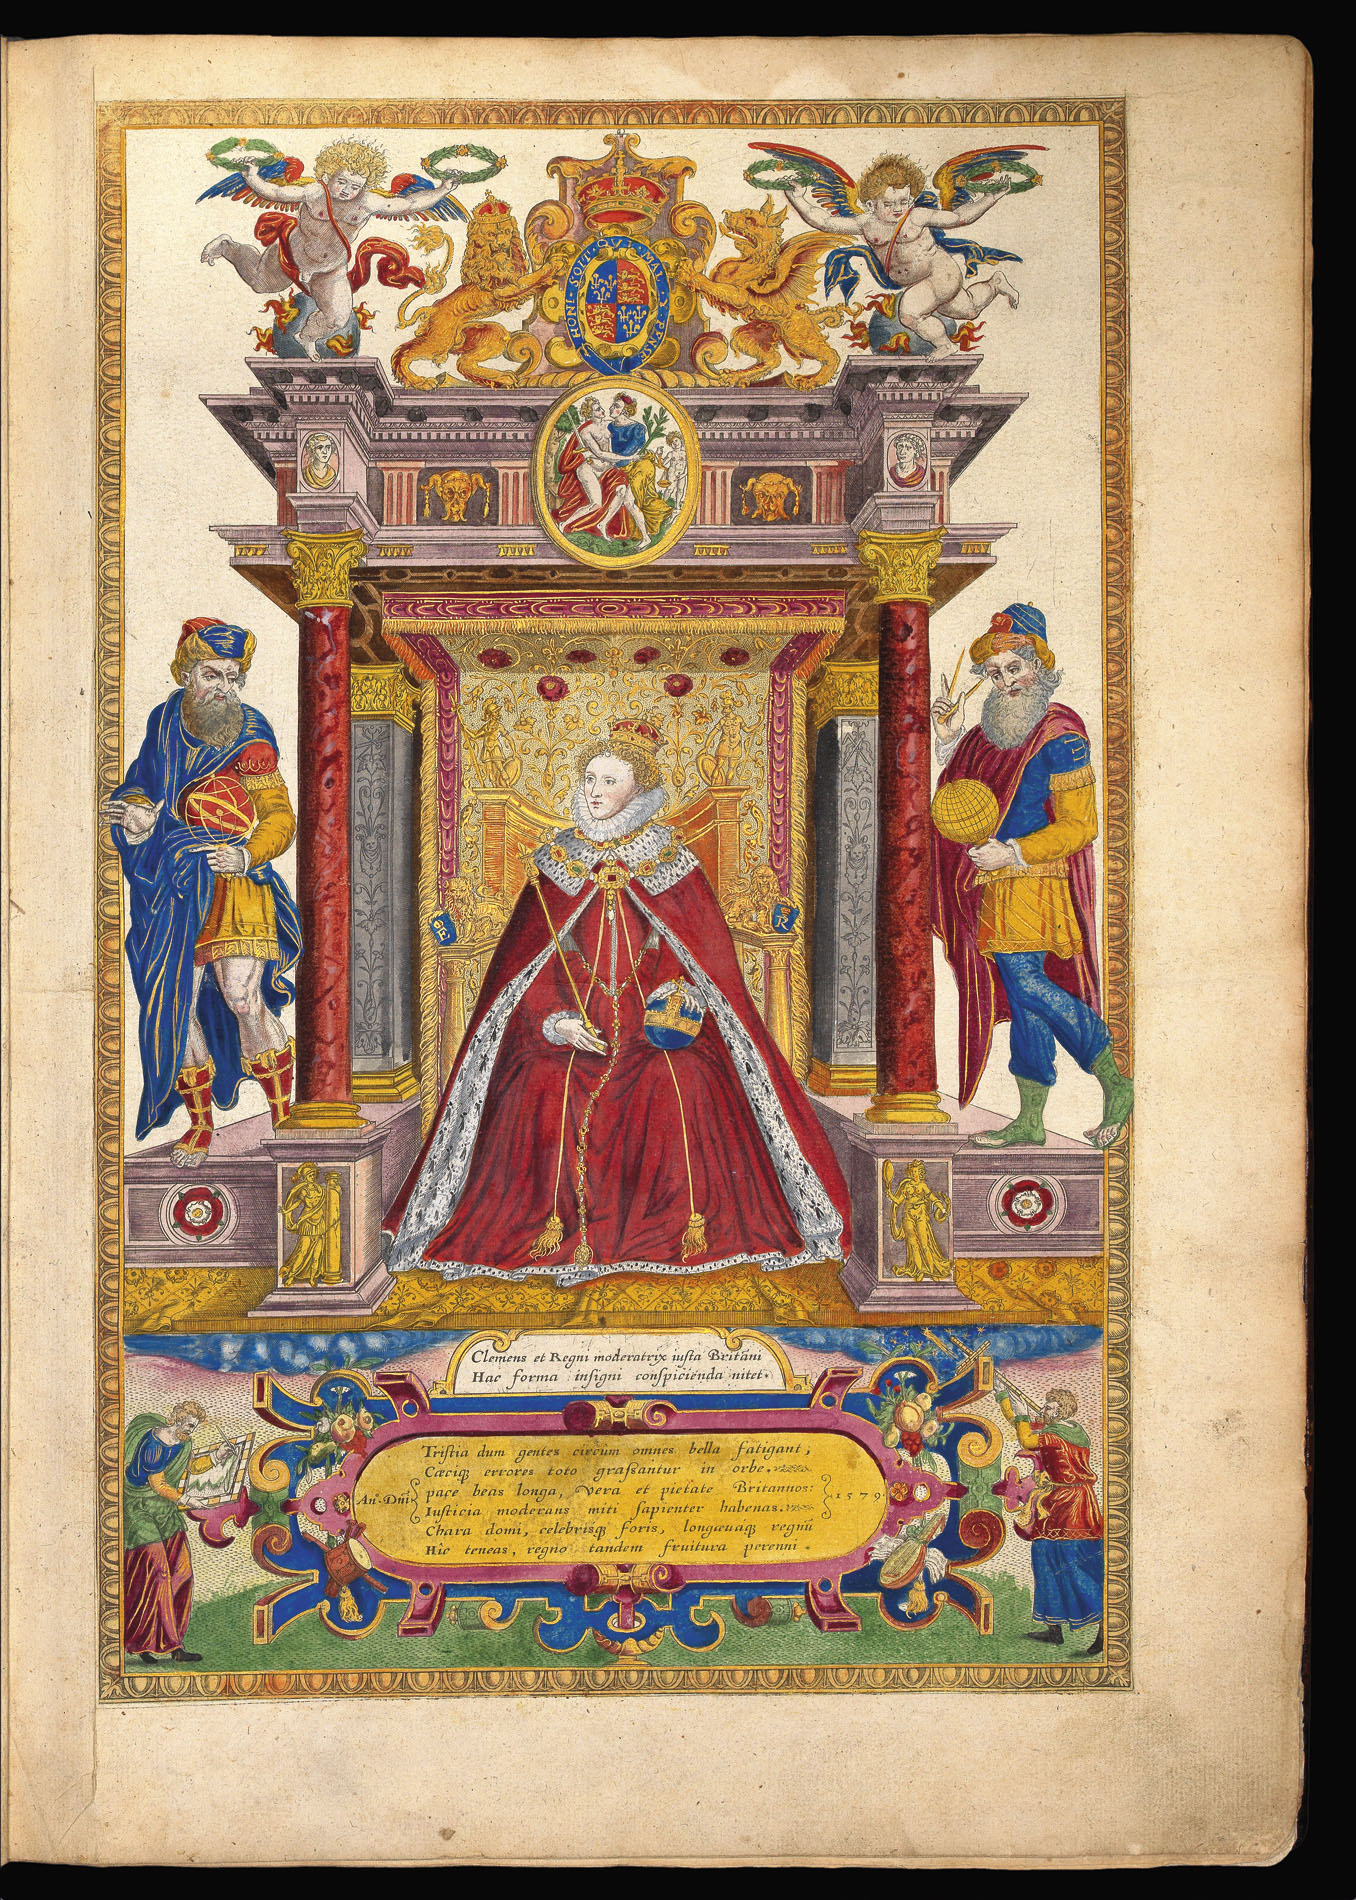 HONI · SOIT · QVI · MAL · Y · PENSE
E
R
Clemens et Regni moderatrix iusta Britāni
Hac forma insigni conspicienda nitet.
Tristia dum gentes circùm omnes bella fatigant,
Cæciq; errores toto graßantur in orbe.
pace beas longa, vera et pietate Britannos:
An°. Dnī
1579
Iusticia moderans miti sapienter habenas.
Chara domi, celebrisq; foris, longævuq; regnū
Hîc teneas, regno tandem fruitura perenni.